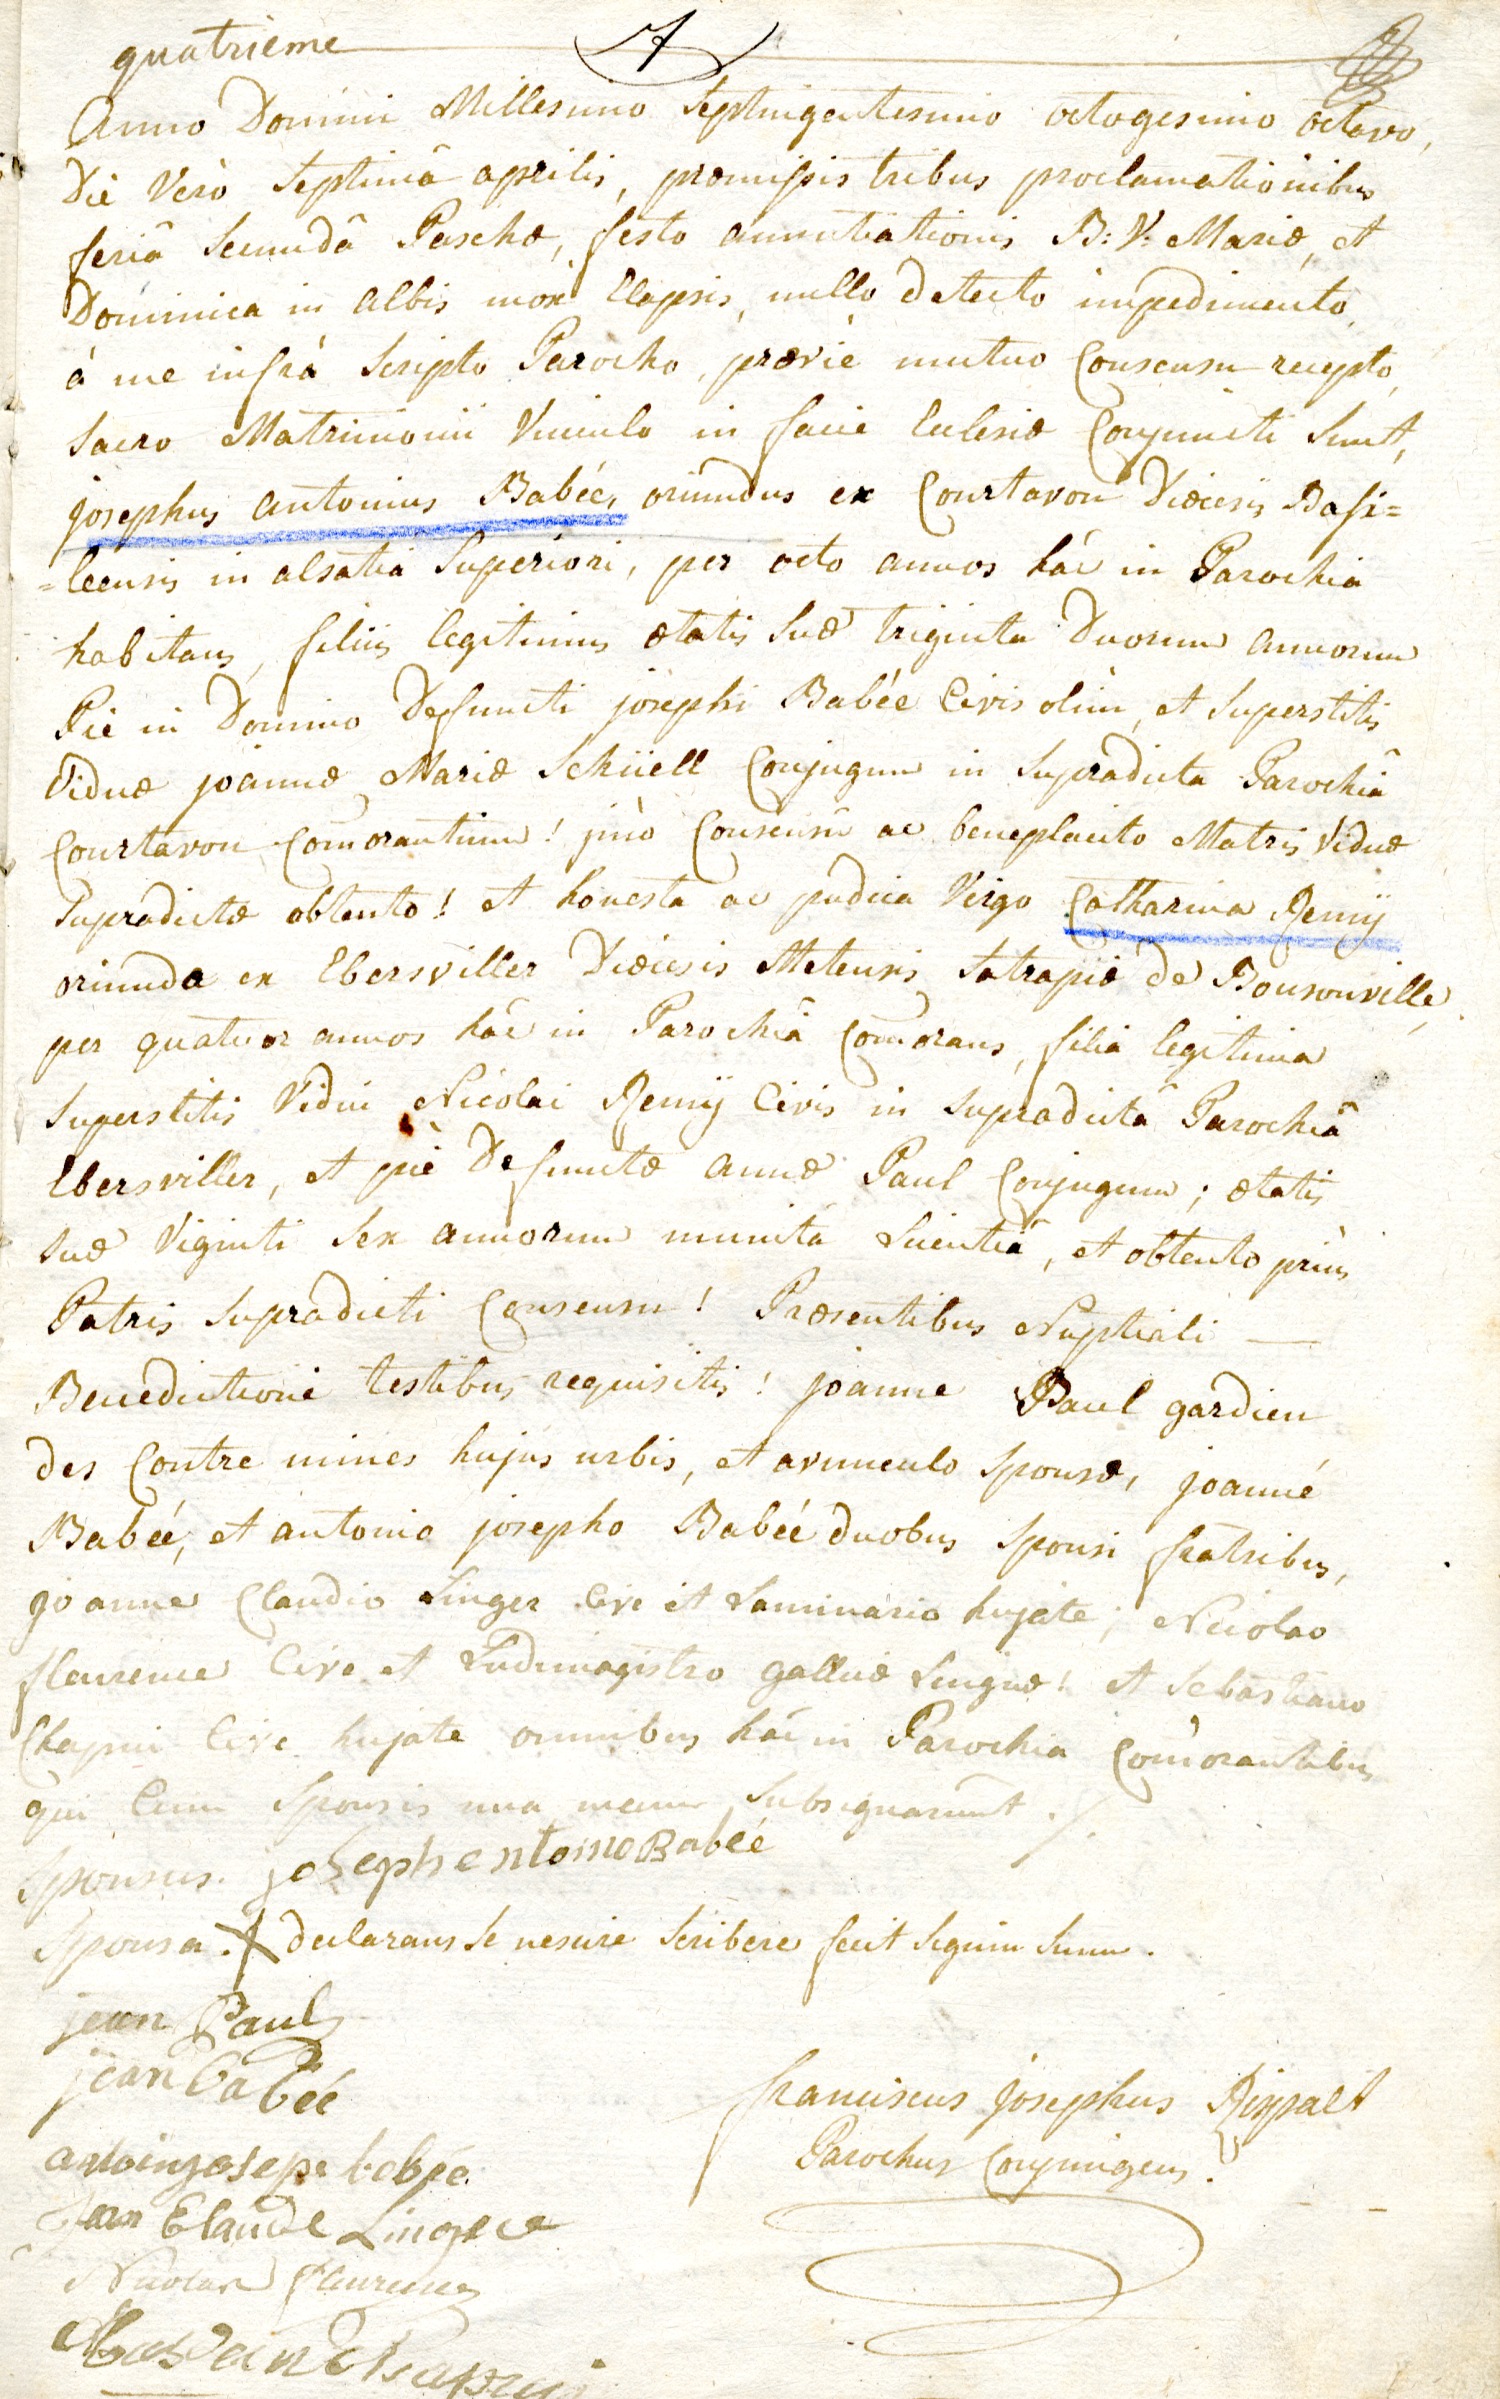 quatrième
Anno Domini Millesimo Septingentesimo octogesimo octavo,
Die Verò Septimâ aprilis, præmissis tribus proclamationibus
feriâ Secundâ Paschæ, festo annuntiationis B: V: Mariæ, et
Dominica in albis mox Elapsis, nullo detecto impedimento,
à me infrà Scripto Parocho, prævie mutuo Consensu recepto,
Sacro Matrimonii Vinculo in facie Ecclesiæ Conjuncti Sunt,
josephus antonius Babéé, oriundus ex Courtavon Diœcesis Basi=
=leensis in alsatia Superiori, per octo annos hác in Parochia
habitans, filius legitimus ætatis Suæ triginta Duorum annorum
Pie in Domino Defuncti josephi Babéé Civis olim, et Superstitis
Viduæ joannæ Mariæ Schüell Conjugum in Supradicta Parochiâ
Courtavon Comorantium! Consensu ac beneplacito Matris Viduæ
Supradictæ obtento! et honesta ac pudica Virgo Catharina Remÿ
oriunda ex Ebersviller Diœcesis Metensis Satrapiæ de Bousonville,
per quatuor annos hâc in Parochiâ Comorans, filia legitima
Superstitis Vidui Nicolai Remÿ Civis in Supradictâ Parochiâ
Ebersviller, et piè Defunctæ annæ Paul Conjugum; ætatis
Suæ Viginti Sex annorum munita Licentiâ, et obtento priùs
Patris Supradicti Consensu! Præsentibus Nuptiali
Benedictioni testibus requisitis! joanne Paul gardien
des Contre mines hujus urbis, et avunculo Sponsæ, joanné
Babéé, et antonio josepho Babéé duobus Sponsi fratribus,
joanne Claudio Linger Cive et Laminario hujate; Nicolao
fleurence Cive et Ludimagistro gallicæ Linguæ! et Sebastiano
Chapui Cive hujate omnibus hác in Parochia Comorantibus
qui Cum Sponsis una mecum Subsignarunt ./.
Sponsus. joseph entoino Babéé
Sponsa. declarans Se nescire Scribere fecit Signum Suum.
jean Paul
jean babéé
franciscus josephus Rispalt
Parochus Conjungens.
antoin josepe bebée
Jan Claude Lingre
Nicolas fleurence